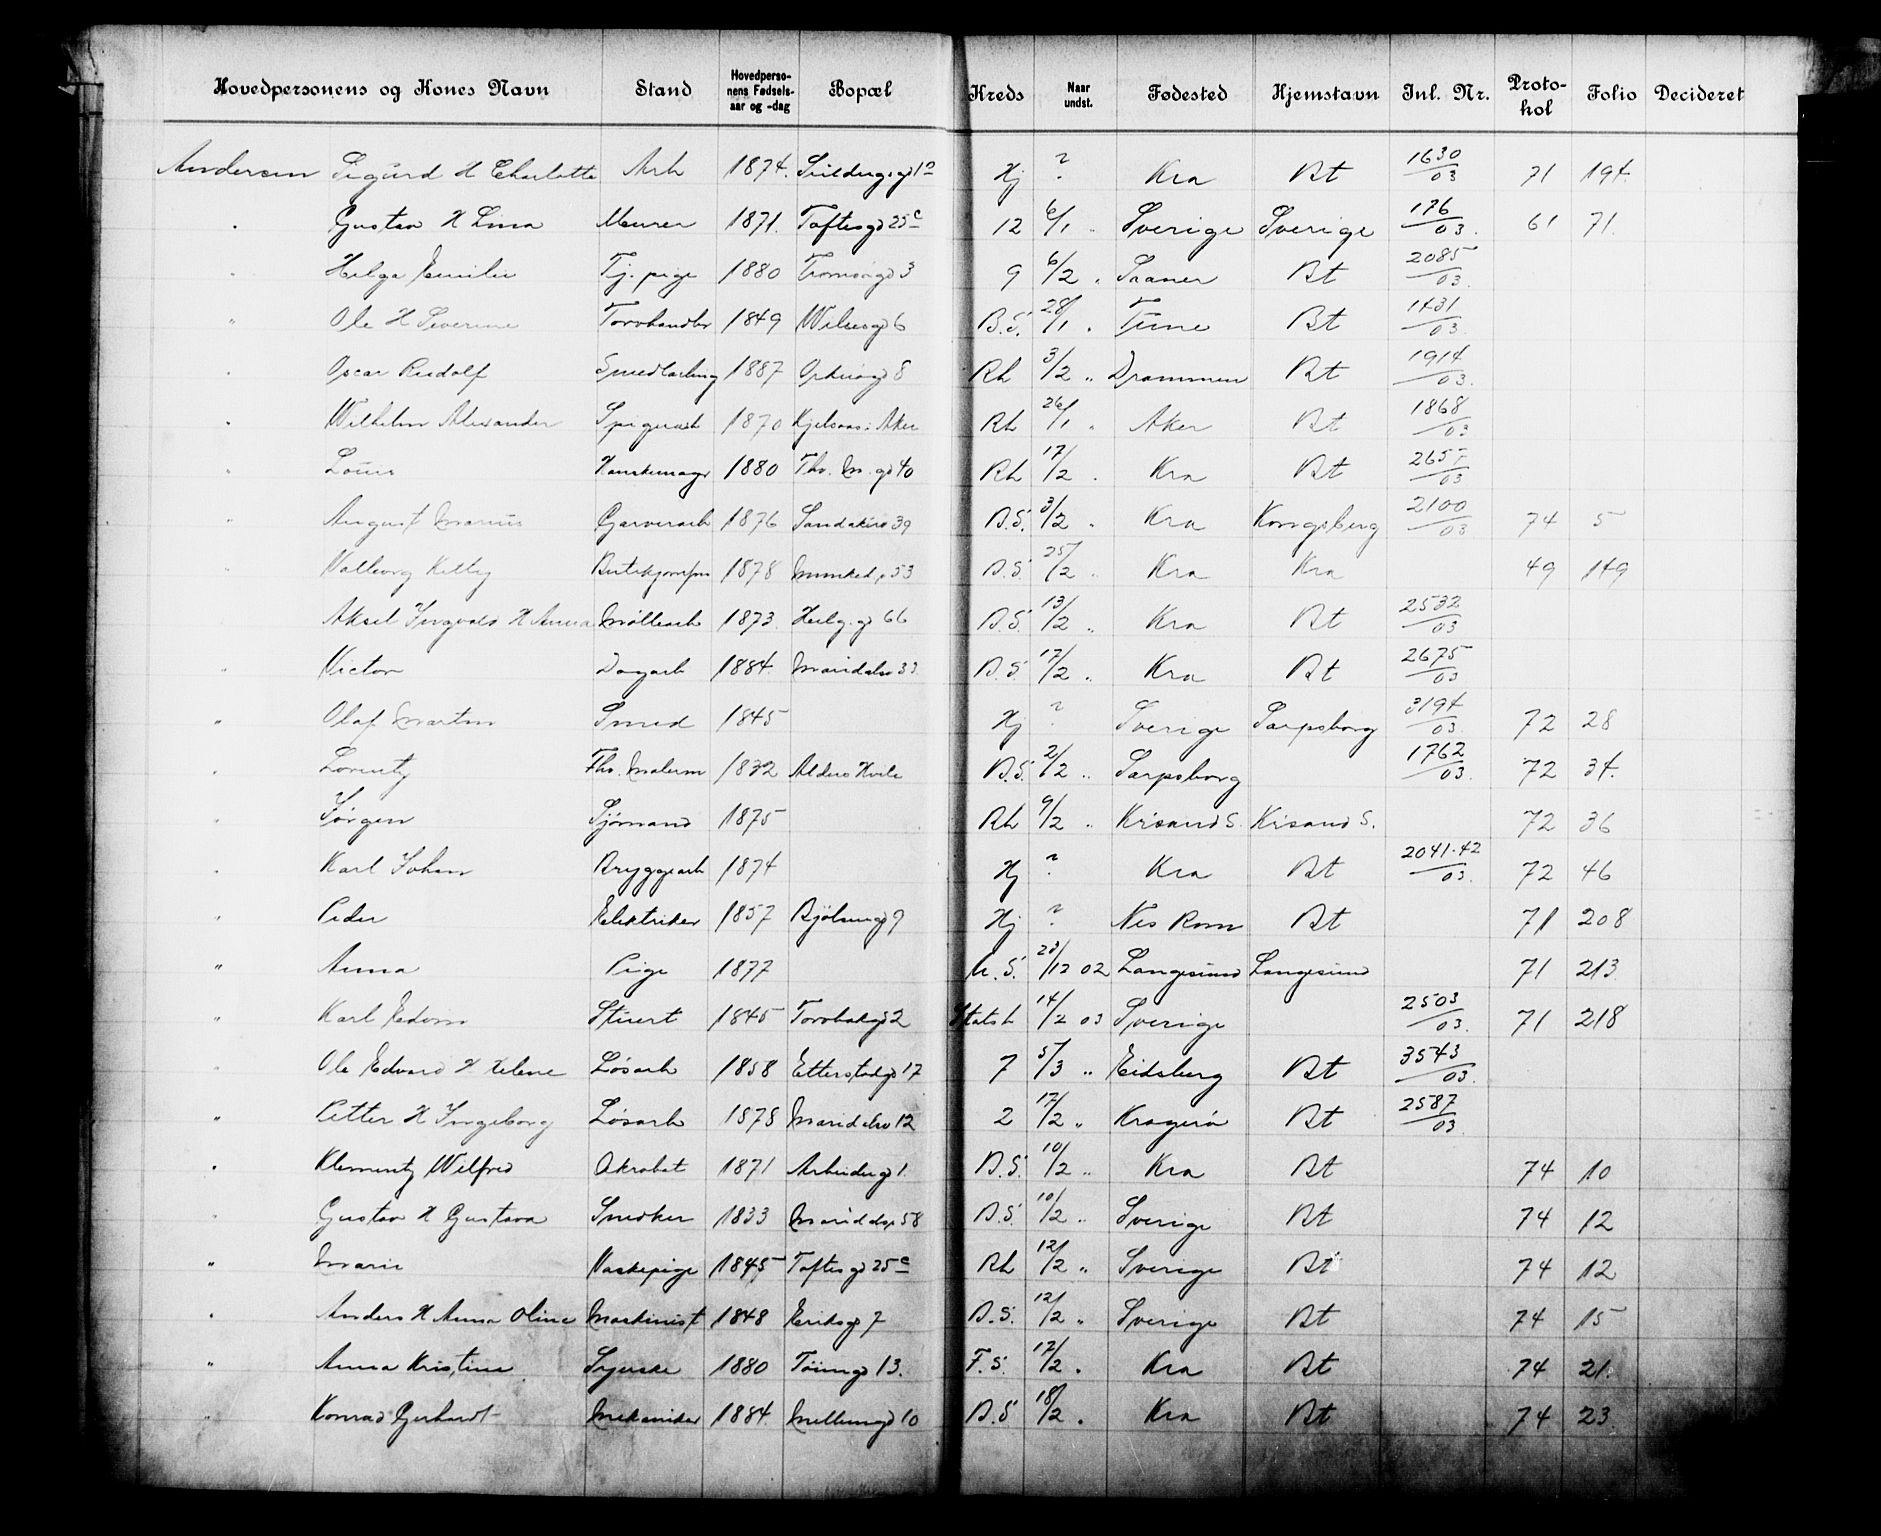 Hovedpersonens og Kones Navn Stand Hovedpersonens Fødselsaar og -dag Bopæl Kreds Naar undst. Fødested Hjemstavn Inl. Nr. Protokol Folio Decideret
Andersen Sigurd H Charlotte Arb 1874. Hj ? Kra Bt 1630/03 71 194.
" Gustav H Lina Murer 1871. Toftesgd 25c 12 6/1 " Sverige Sverige 176/03. 61 71.
" Helga Emilie Tj. pige 1880 Tromsøgd 3 9 6/2 " Saaner Bt 2085/03
" Ole H Severine Torvhandler 1849 Wilsesgd 6 B.S. 28/1 " Tune Bt 1431/03.
" Oscar Rudolf Smedlærling 1887 8 Rh 3/2 " Drammen Bt 1914/03.
" Wilhelm Alexander Spigerarb 1870 Kjelsaas i Aker Rh 26/1 " Aker Bt 1868/03
" Louis Hanskemagr 1880 Thv. M. gd 40 Rh 17/2 " Kra Bt 2657/03
" August Marius Garverarb 1876 Sandakerv 39 B.S. 3/2 " Kra Kongsberg 2100/03 74 5
" Valborg Ketty Butikjomfru 1878 Munked. 53 B.S. 25/2 " Kra Kra 49 149
Aksel Ingvald H Anna Møllearb 1873. Helg. gd 66 B.S. 13/2 " Kra Bt 2532/03
" Victor Dagarb 1884. Maridalsv 33 B.S. 17/2 " Kra Bt 2675/03
" Olaf Martin Smed 1845 Hj ? Sverige Sarpsborg 3194/03. 72 28
" Lorentz Fhv. Malerm 1832 Alders Hvile B.S. 2/2 " Sarpsborg 1762/03. 72 34.
" Jørgen Sjømand 1875 Rh 9/2 " Krisand S. Krisand S. 72 36
" Karl Johan Bryggearb 1874 Hj ? Kra Bt 2041-42/03. 72 46
" Peder Elektriker 1857 Bjølsengd 9 Hj ? Nes Rom Bt 71 208
" Anna Pige 1877 U.S. 23/12 02 Langesund Langesund 71 213.
" Karl Edvin Stuert 1845 Torvbakgd 2 Statsh 14/2 03 Sverige 2503/03. 71 218
" Ole Edvard H Helene Løsarb 1858 Etterstadgd 17 7 5/3 " Eidsberg Bt 3543/03.
" Petter H Ingeborg Løsarb 1878 Maridalsv 12 2 17/2 " Kragerø Bt 2587/03.
" Klementz Wilfred Akrobat 1871 Arbeidergd 1. B.S. 10/2 " Kra Bt 74 10
" Gustav H Gustava Snedker 1833 58 B.S. 10/2 " Sverige Bt 74 12
" Marie Vaskepige 1845 Toftesgd 25c Rh 12/2 " Sverige Bt 74 12
" Anders H Anna Oline Maskinist 1848 Eriksgd 7 B.S. 12/2 " Sverige Bt 74 15
" Anna Kristine Syerske 1880 Tøiengd 13. F.S. 17/2 " Kra Bt 74 21.
" Konrad Gerhardt Mekaniker 1884. Mellemgd 10 B.S 18/2 " Kra Bt 74 23.